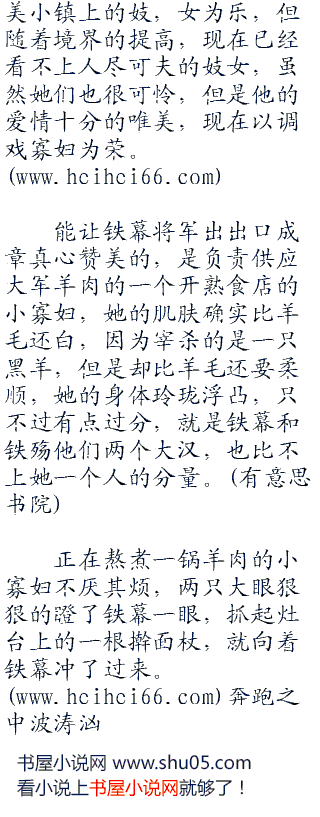 美小镇上的妓，女为乐，但
随着境界的提高，现在已经
看不上人尽可夫的妓女，虽
然她们也很可怜，但是他的
爱情十分的唯美，现在以调
戏寡妇为荣。
(www.hcihci66.com)
能让铁幕将军出出口成
章真心赞美的，是负责供应
大军羊肉的一个开熟食店的
小寡妇，她的肌肤确实比羊
毛还白，因为宰杀的是一只
黑羊，但是却比羊毛还要柔
顺，她的身体玲珑浮凸，只
不过有点过分，就是铁幕和
铁殇他们两个大汉，也比不
上她一个人的分量。(有意思
书院)
正在熬煮一锅羊肉的小
寡妇不厌其烦，两只大眼狠
狠的瞪了铁幕一眼，抓起灶
台上的一根擀面杖，就向着
铁幕冲了过来。
(www.hcihci66.com)奔跑之
中波涛汹
书屋小说网 www.shu05.com
看小说上书屋小说网就够了！